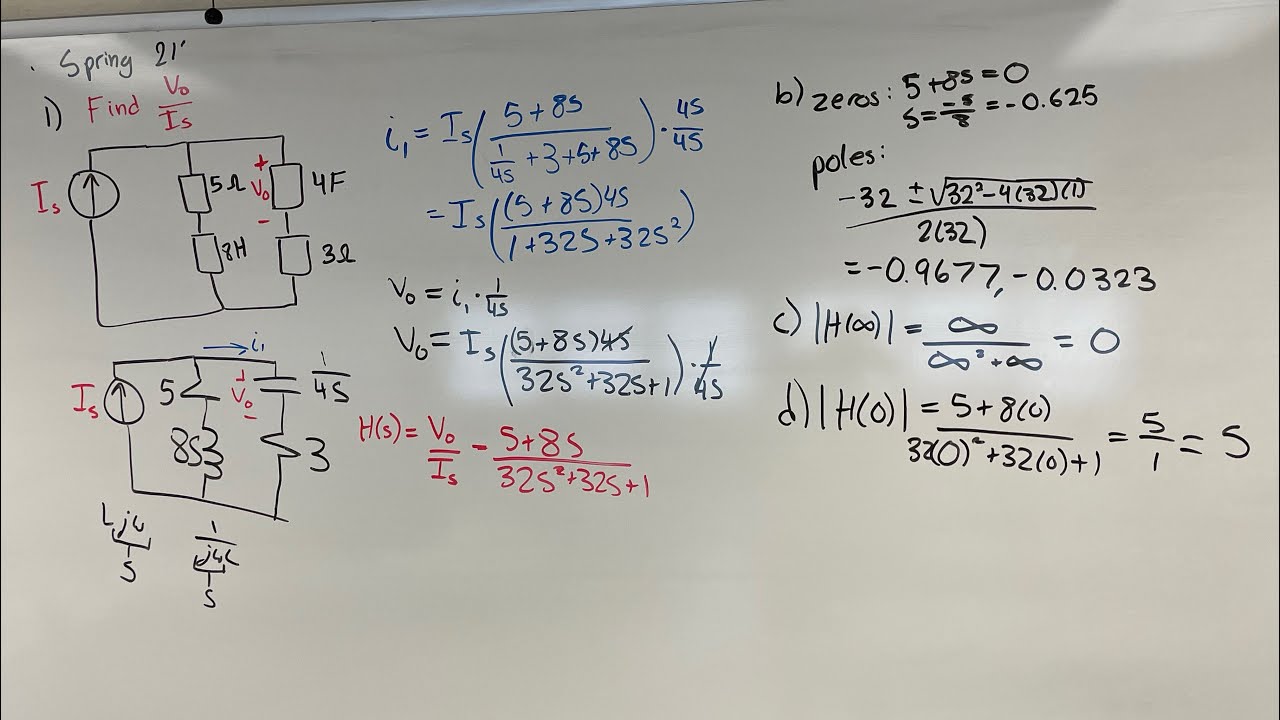 Spring 21'
1) Find Vo/Is
Is
5Ω
+
Vo
-
4F
8H
3Ω
i₁
Is
5
+
Vo
-
1/4S
8S
3
Ljω
S
1/jωC
S
i₁ = Is((5+8S)/(1/4S + 3+5+8S)) · 4S/4S
= Is((5+8S)4S/(1+32S+32S²))
Vo = i₁ · 1/4S
Vo = Is((5+8S)4S/(32S²+32S+1)) · 1/4S
H(s) = Vo/Is - (5+8S)/(32S²+32S+1)
b) zeros: 5+8S=0
S = -5/8 = -0.625
poles:
(-32 ± √(32²-4(32)(1)))/2(32)
= -0.9677, -0.0323
c) |H(∞)| = ∞/(∞²+∞) = 0
d) |H(0)| = (5+8(0))/(32(0)²+32(0)+1) = 5/1 = 5